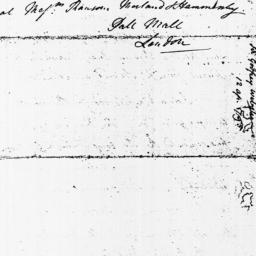 at Mess.rs Ransom Morland & Hammersley
Pall Mall
London
12 Apr.